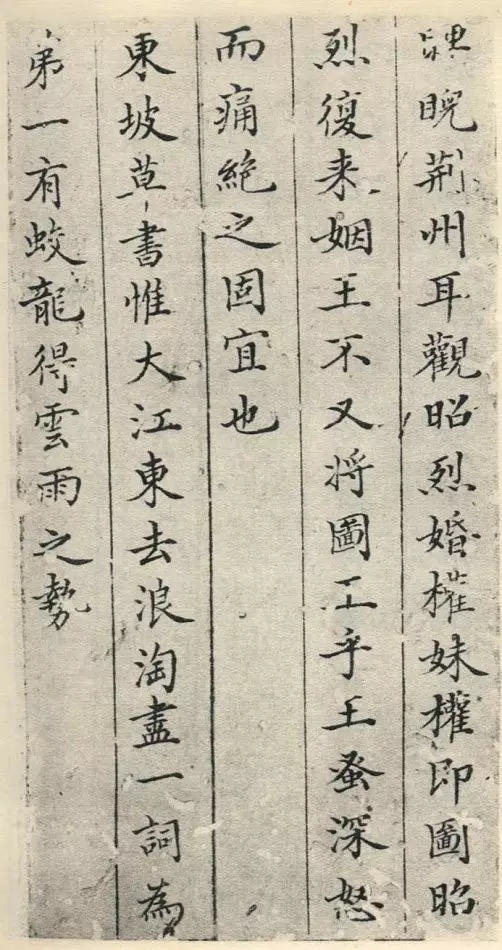 睨荊州耳觀昭烈婚權妹權即圖昭
烈復来姻王不又将圖工乎王蚤深怒
而痛絶之固宜也
東坡草書惟大江東去浪淘盡一詞為
弟一有蛟龍得雲雨之勢